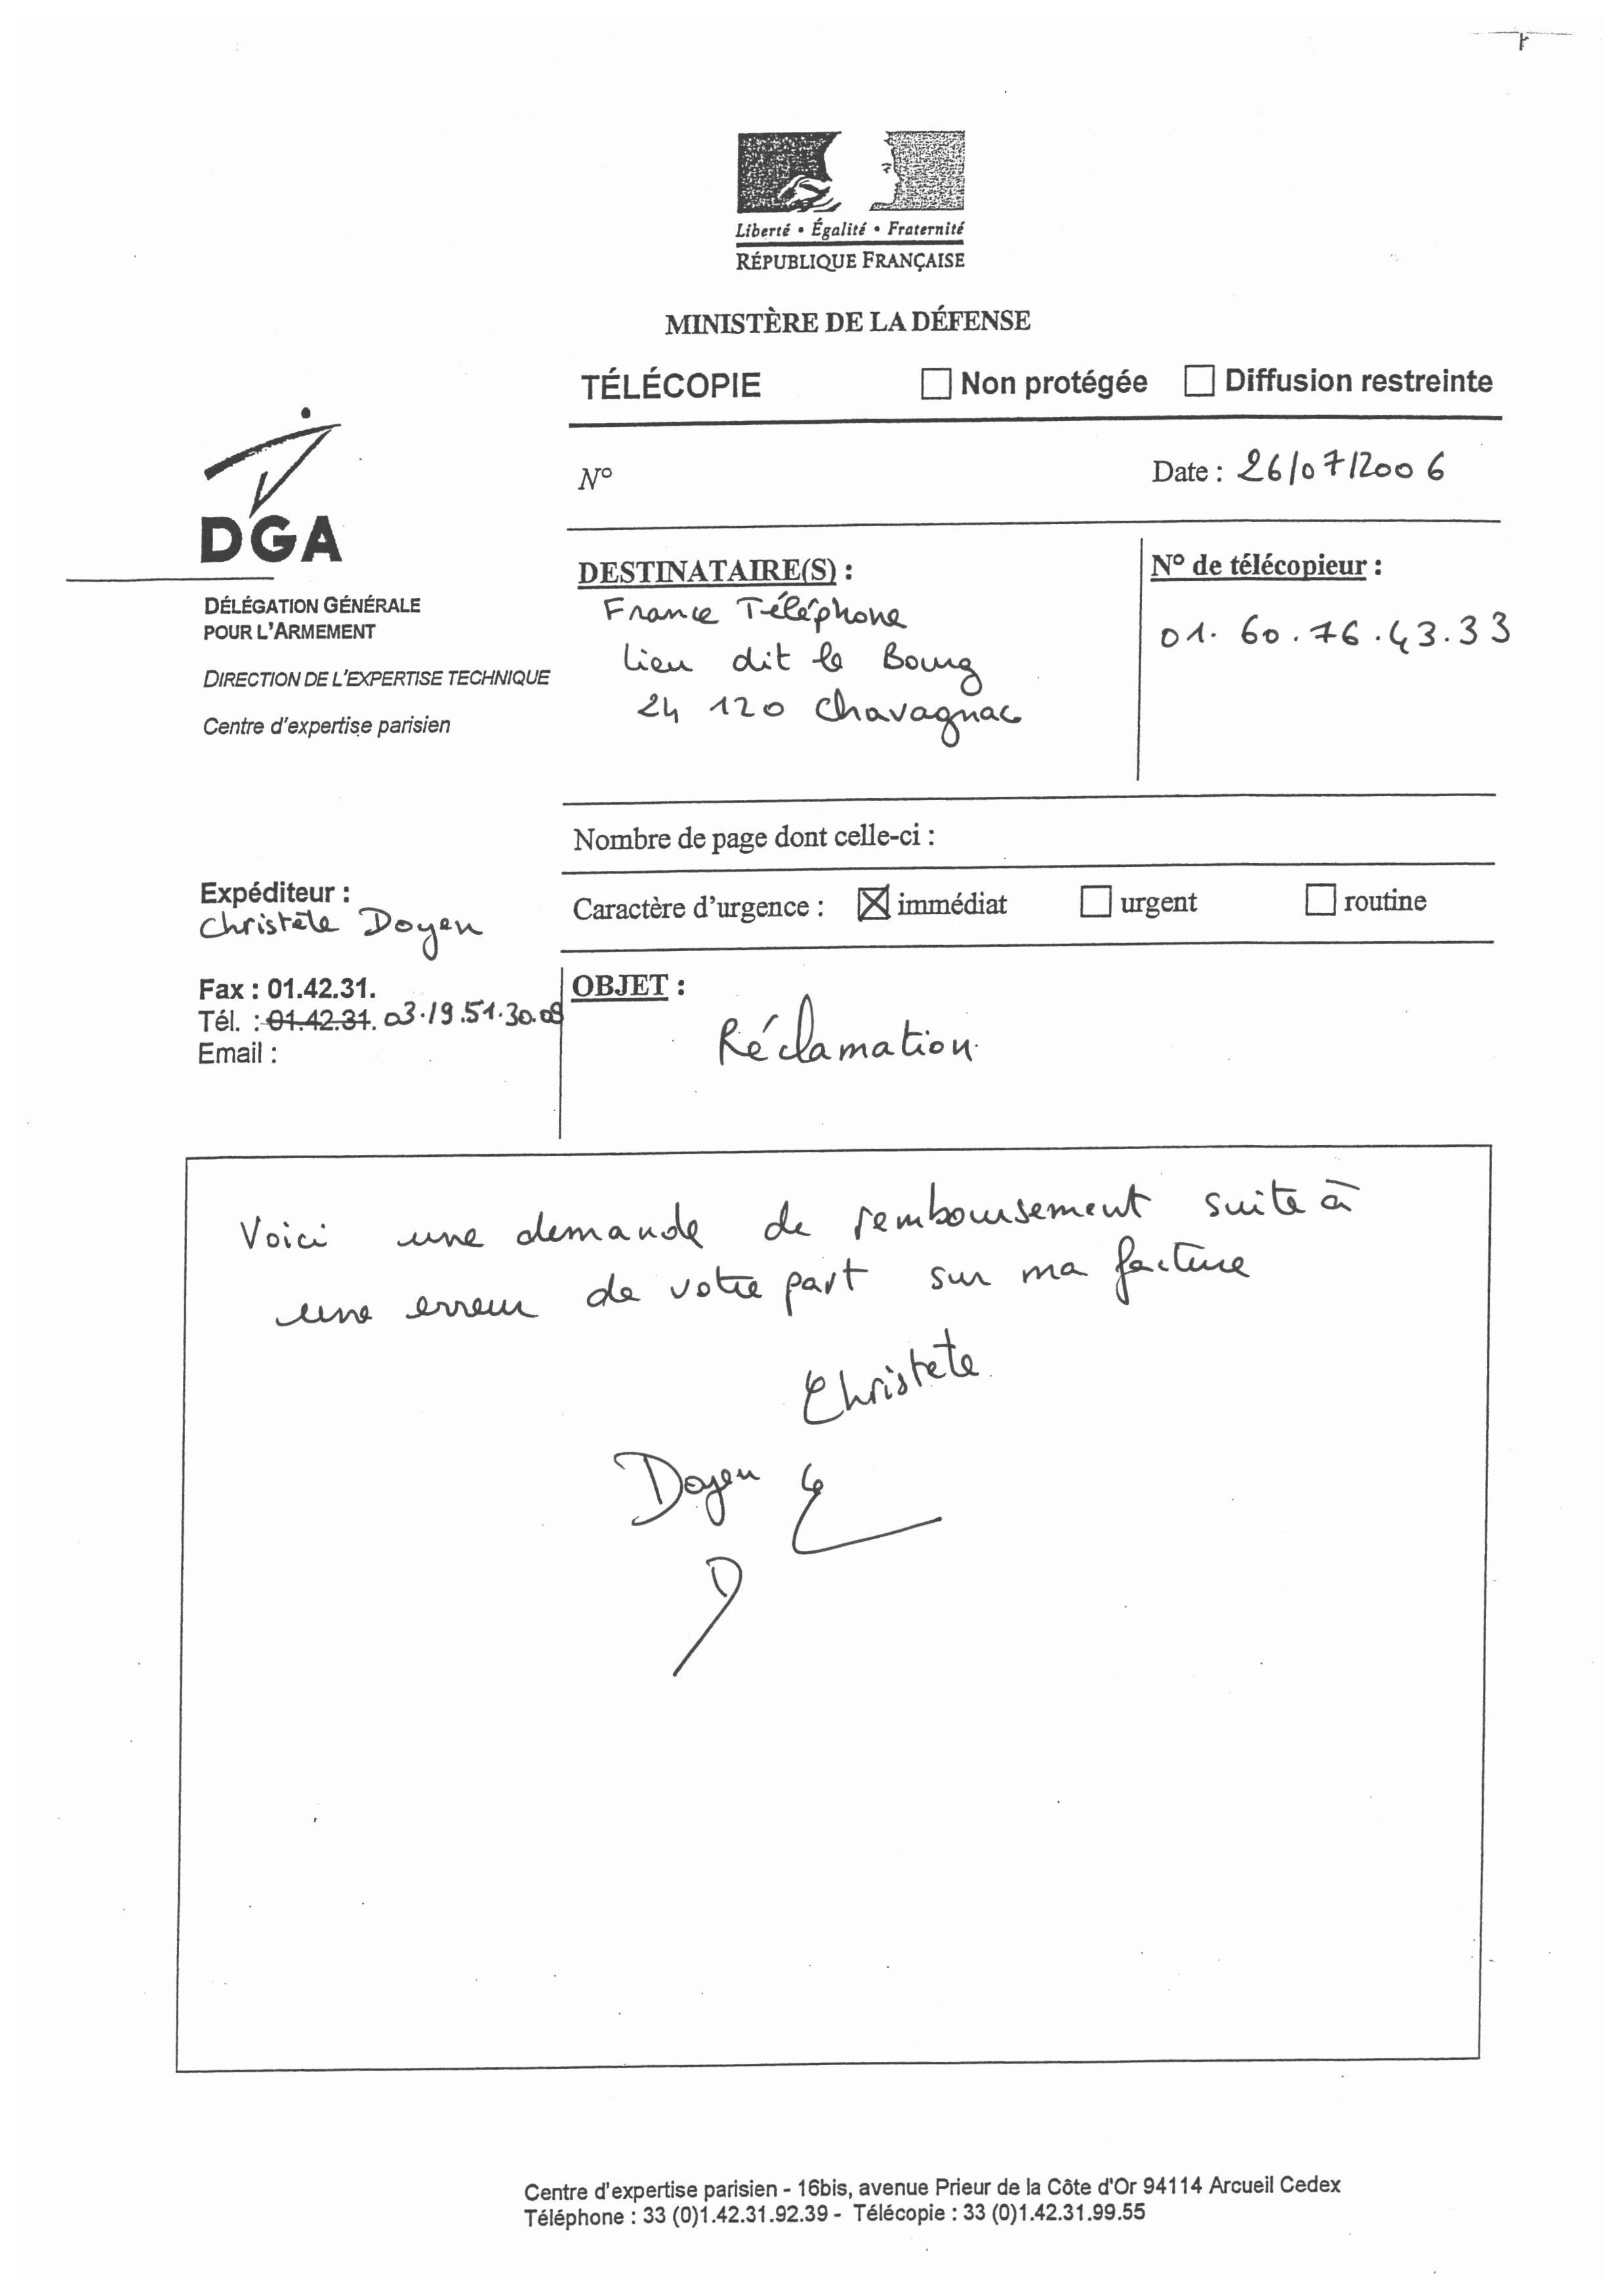 Liberté • Égalité • Fraternité
RÉPUBLIQUE FRANÇAISE
MINISTÈRE DE LA DÉFENSE
TÉLÉCOPIE
Non protégée
Diffusion restreinte
N°
Date : 26/07/2006
DGA
DÉLÉGATION GÉNÉRALE
POUR L'ARMEMENT
DIRECTION DE L'EXPERTISE TECHNIQUE
Centre d'expertise parisien
DESTINATAIRE(S) :
France Téléphone
Lieu dit le Bourg
24 120 Chavagnac
N° de télécopieur :
01. 60. 76. 43. 33
Nombre de page dont celle-ci :
Expéditeur :
Christèle Doyen
Caractère d'urgence : immédiat urgent routine
Fax : 01.42.31.
Tél. : 01.42.31. 03.19.51.30.09
Email :
OBJET :
Réclamation
Voici une demande de remboursement suite à
une erreur de votre part sur ma facture
Christele
Doyen
Centre d'expertise parisien - 16bis, avenue Prieur de la Côte d'Or 94114 Arcueil Cedex
Téléphone : 33 (0)1.42.31.92.39 - Télécopie : 33 (0)1.42.31.99.55